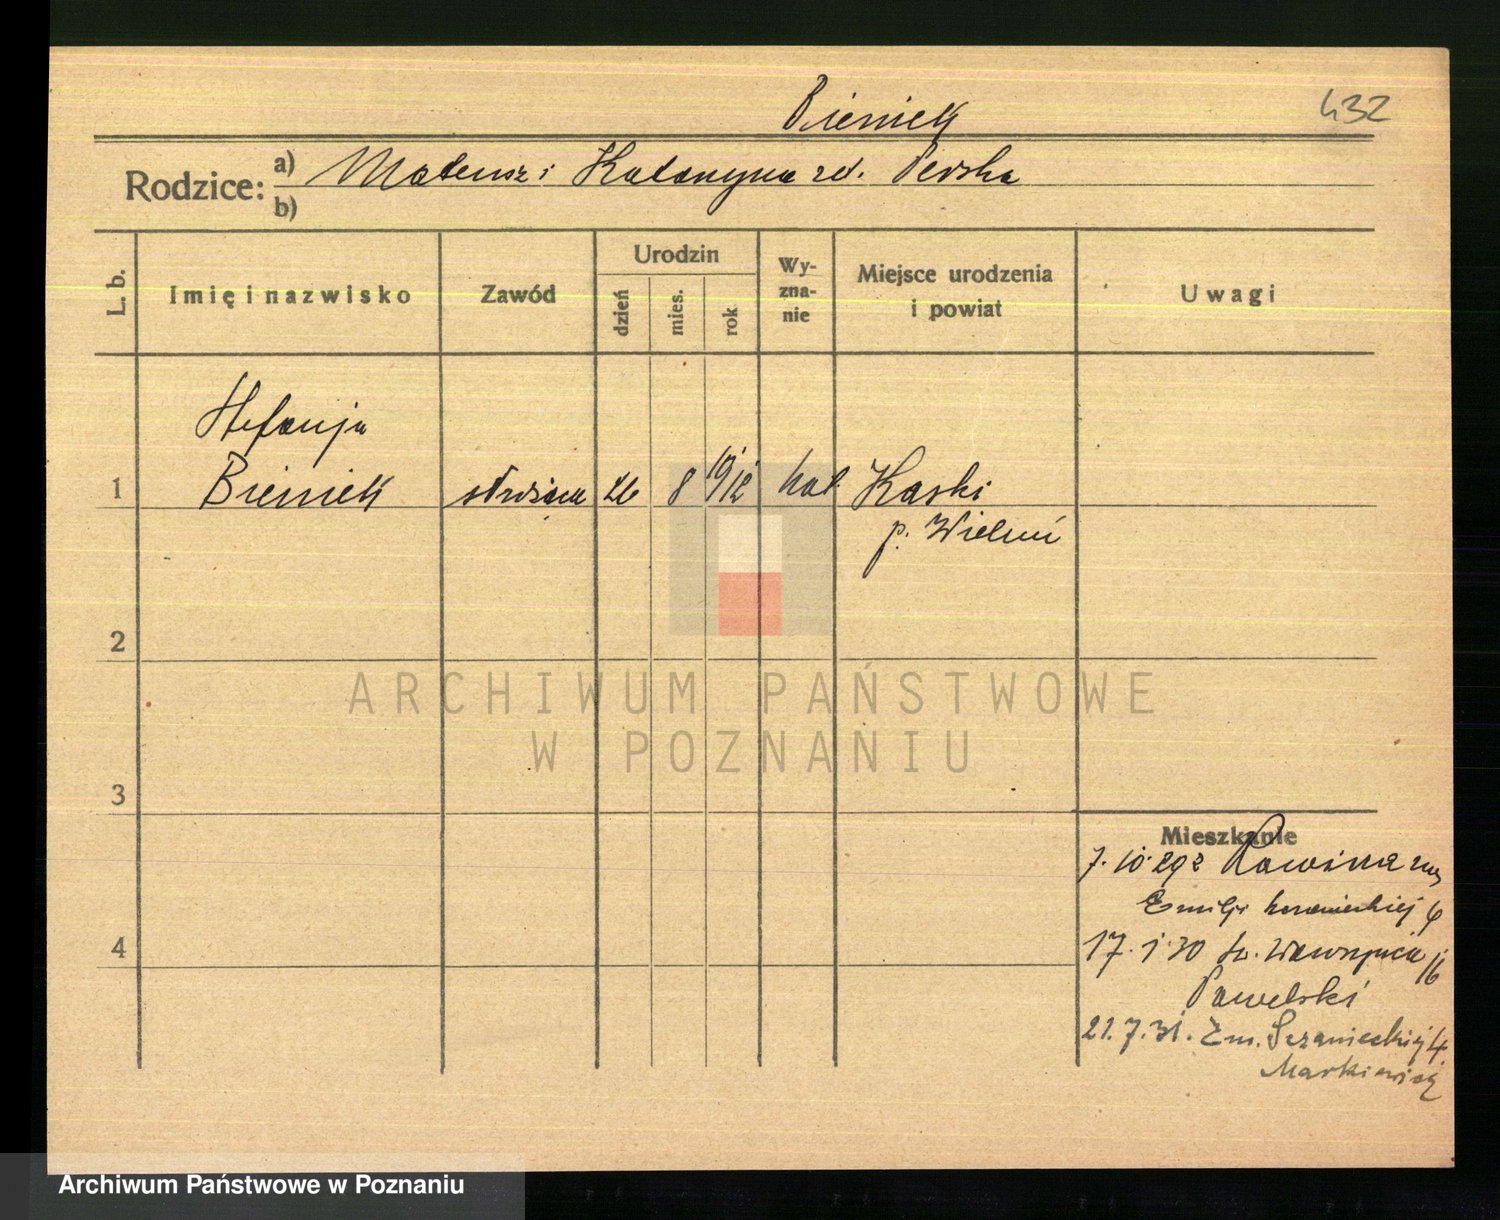 Bieniek
432
Rodzice:
a) Mateusz i Katarzyna zd. Perska
b)
L. b.
Imię i nazwisko
Zawód
Urodzin
dzień
mies.
rok
Wy-
zna-
nie
Miejsce urodzenia
i powiat
Uwagi
Stefanja
1 Bieniek służąca 26 8 1912 kat. Kaski
p. Wieluń
2
3
4
Mieszkanie
7.10.29 Rawicka
Emilji Sczanieckiej
17.1.30 św. Wawrzyńca 16
Pawelski
21.7.31. Em. Sczanieckiej 4.
Markiewicz
ARCHIWUM PAŃSTWOWE
W POZNANIU
Archiwum Państwowe w Poznaniu